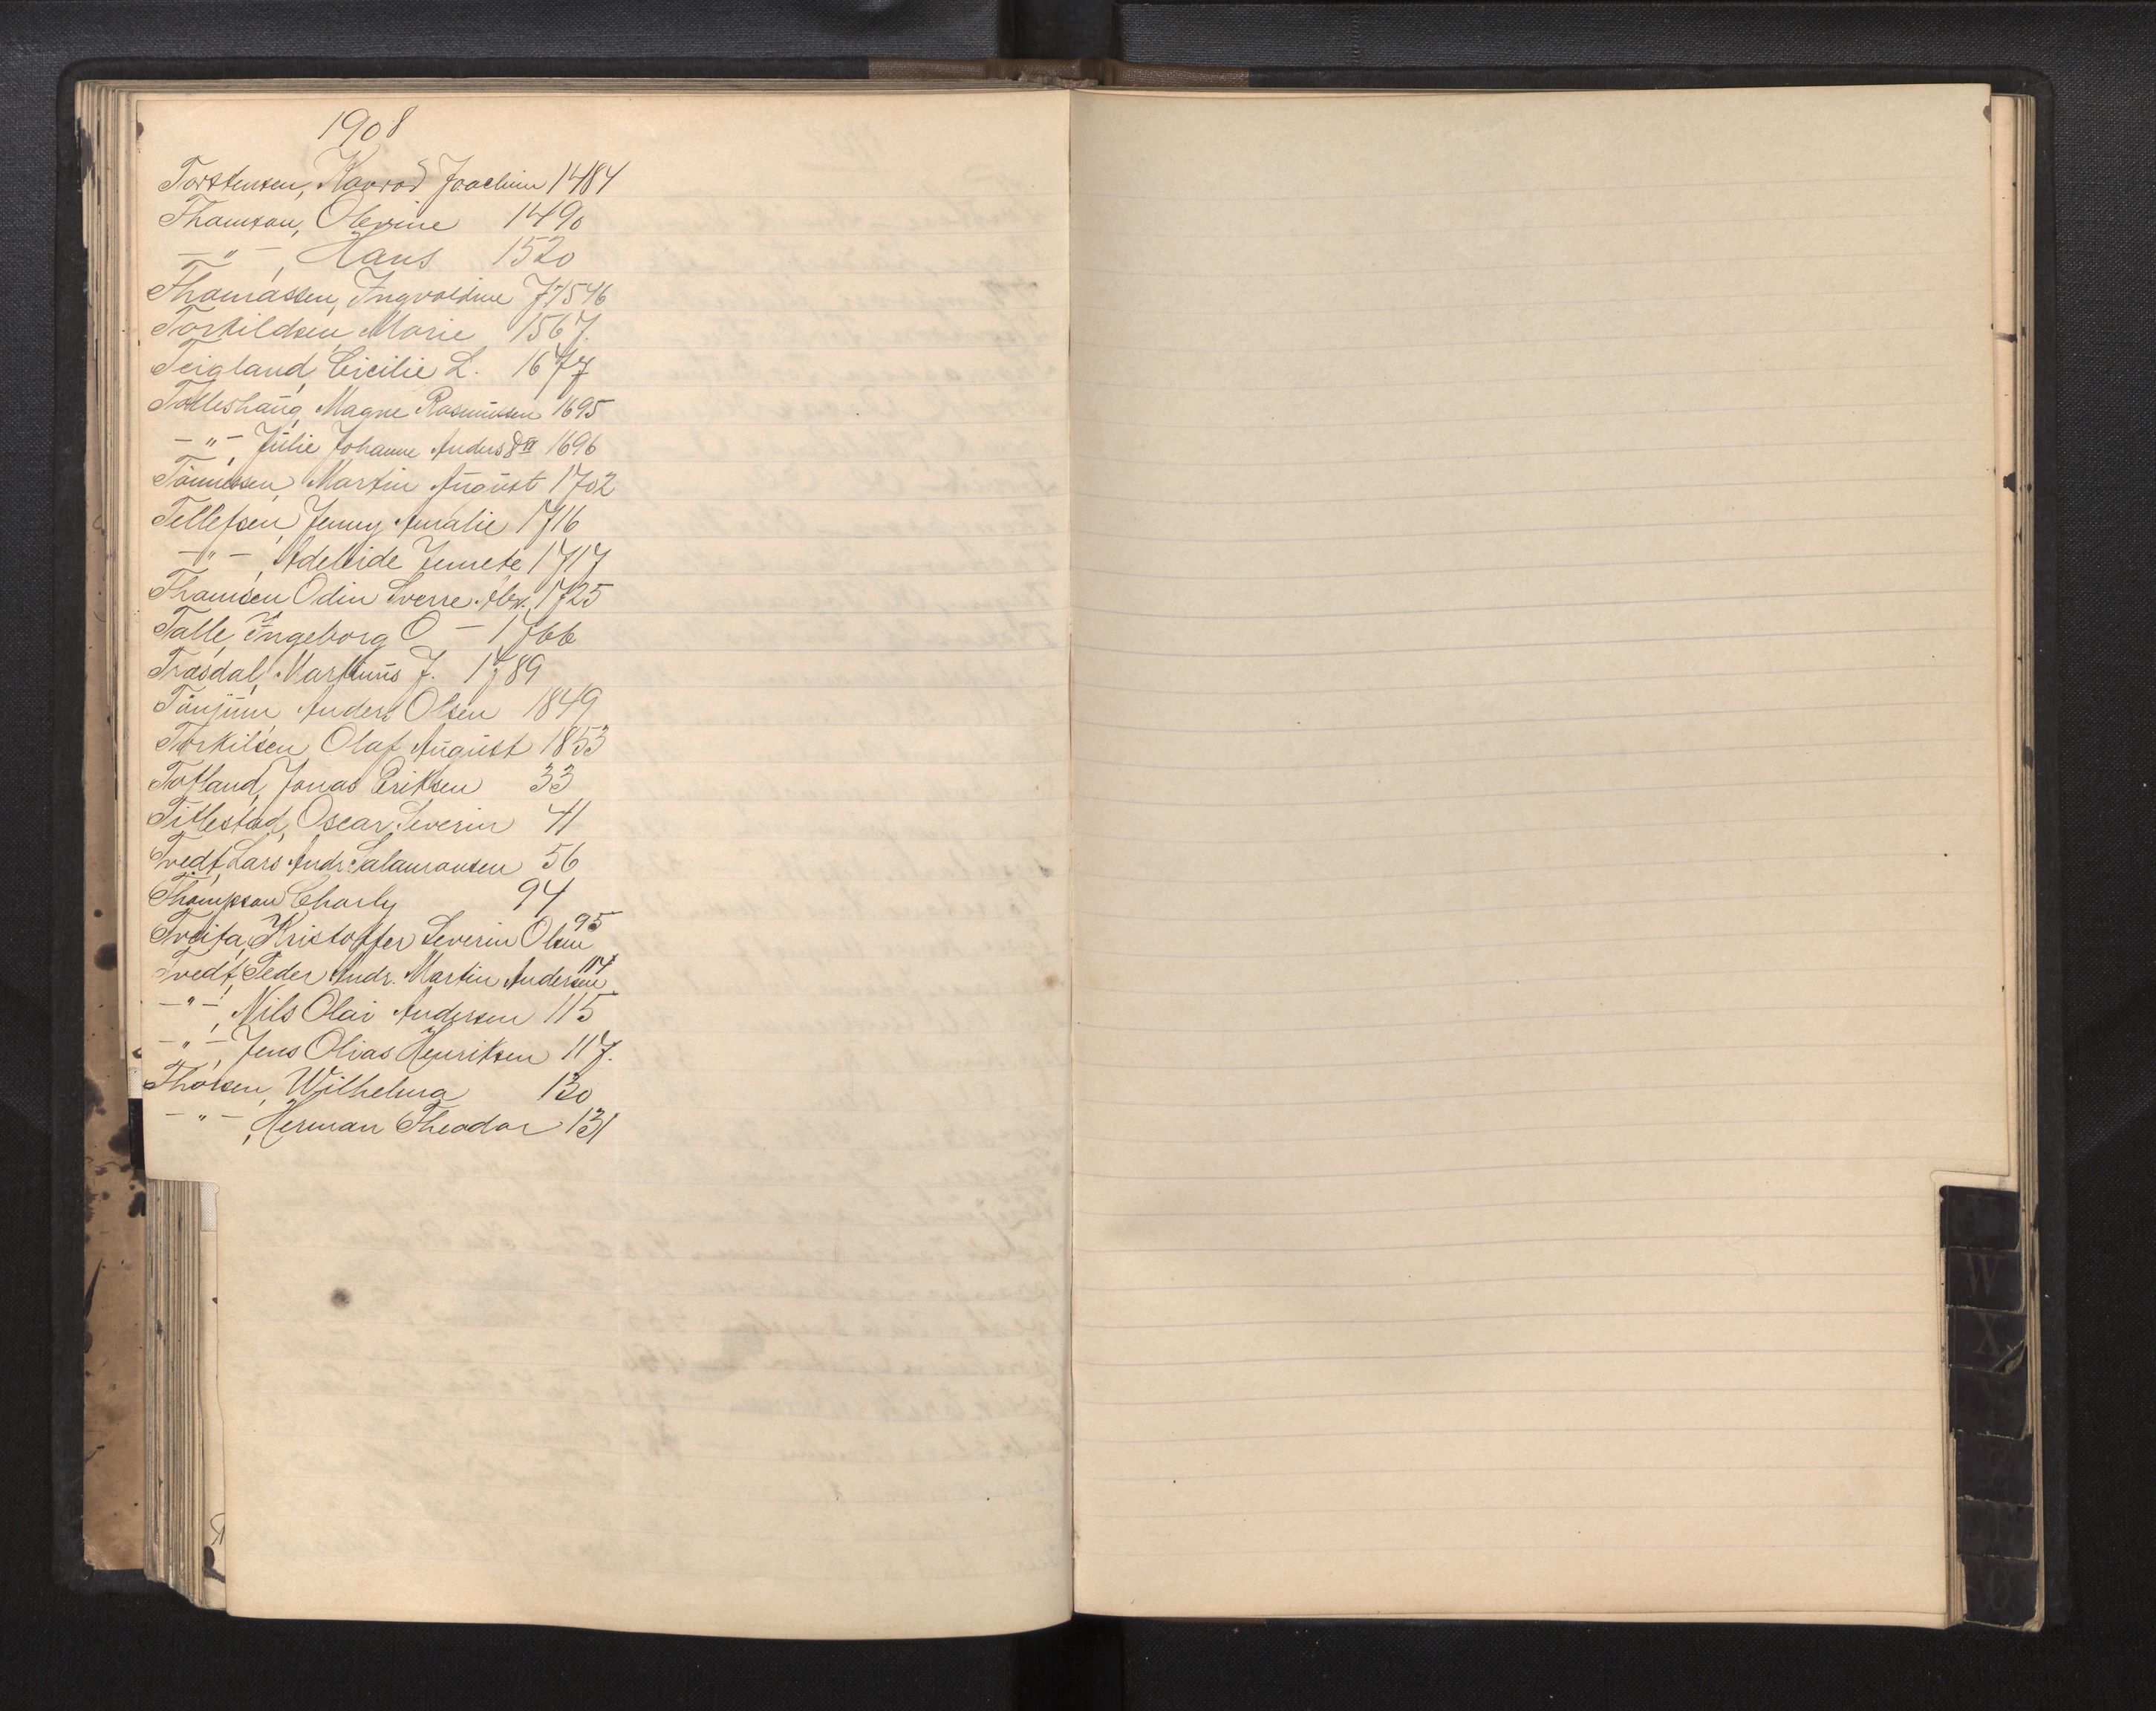 1908
Torstensen, Konrad Joachim 1484
Thomson, Olevine 1490
—"—, Hans 1520
Thomassen, Ingvoldine J. 1546
Torkildsen, Marie 1567.
Teigland, Cicilie L. 1677
Tolleshaug, Magne Rasmussen 1695
—"—, Julie Johanne Andersdtr 1696
Tönnessen, Martin August 1702
Tellefsen, Jenny Amalie 1716
—"—, Adeleide Jensete 1717
Thomsen, Odin Sverre Alex. 1725
Talle, Ingeborg O — 1766
Træsdal, Martinus J. 1789
Tönjum, Anders Olsen 1849
Torkilsen, Olaf August 1853
Totland, Jonas Eriksen 33
Titlestad, Oscar Severin 41
Tvedt, Lars Andr. Salamonsen 56
Thompson, Charly 94
Tveita, Kristoffer Severin Olsen 95
Tvedt, Peder Andr. Martin Andersen 114
—"—, Nils Olai Andersen 115
—"—, Jens Olias Henriksen 117.
Thorsen, Wilhelma 130
—"—, Herman Theodor 131
W
X